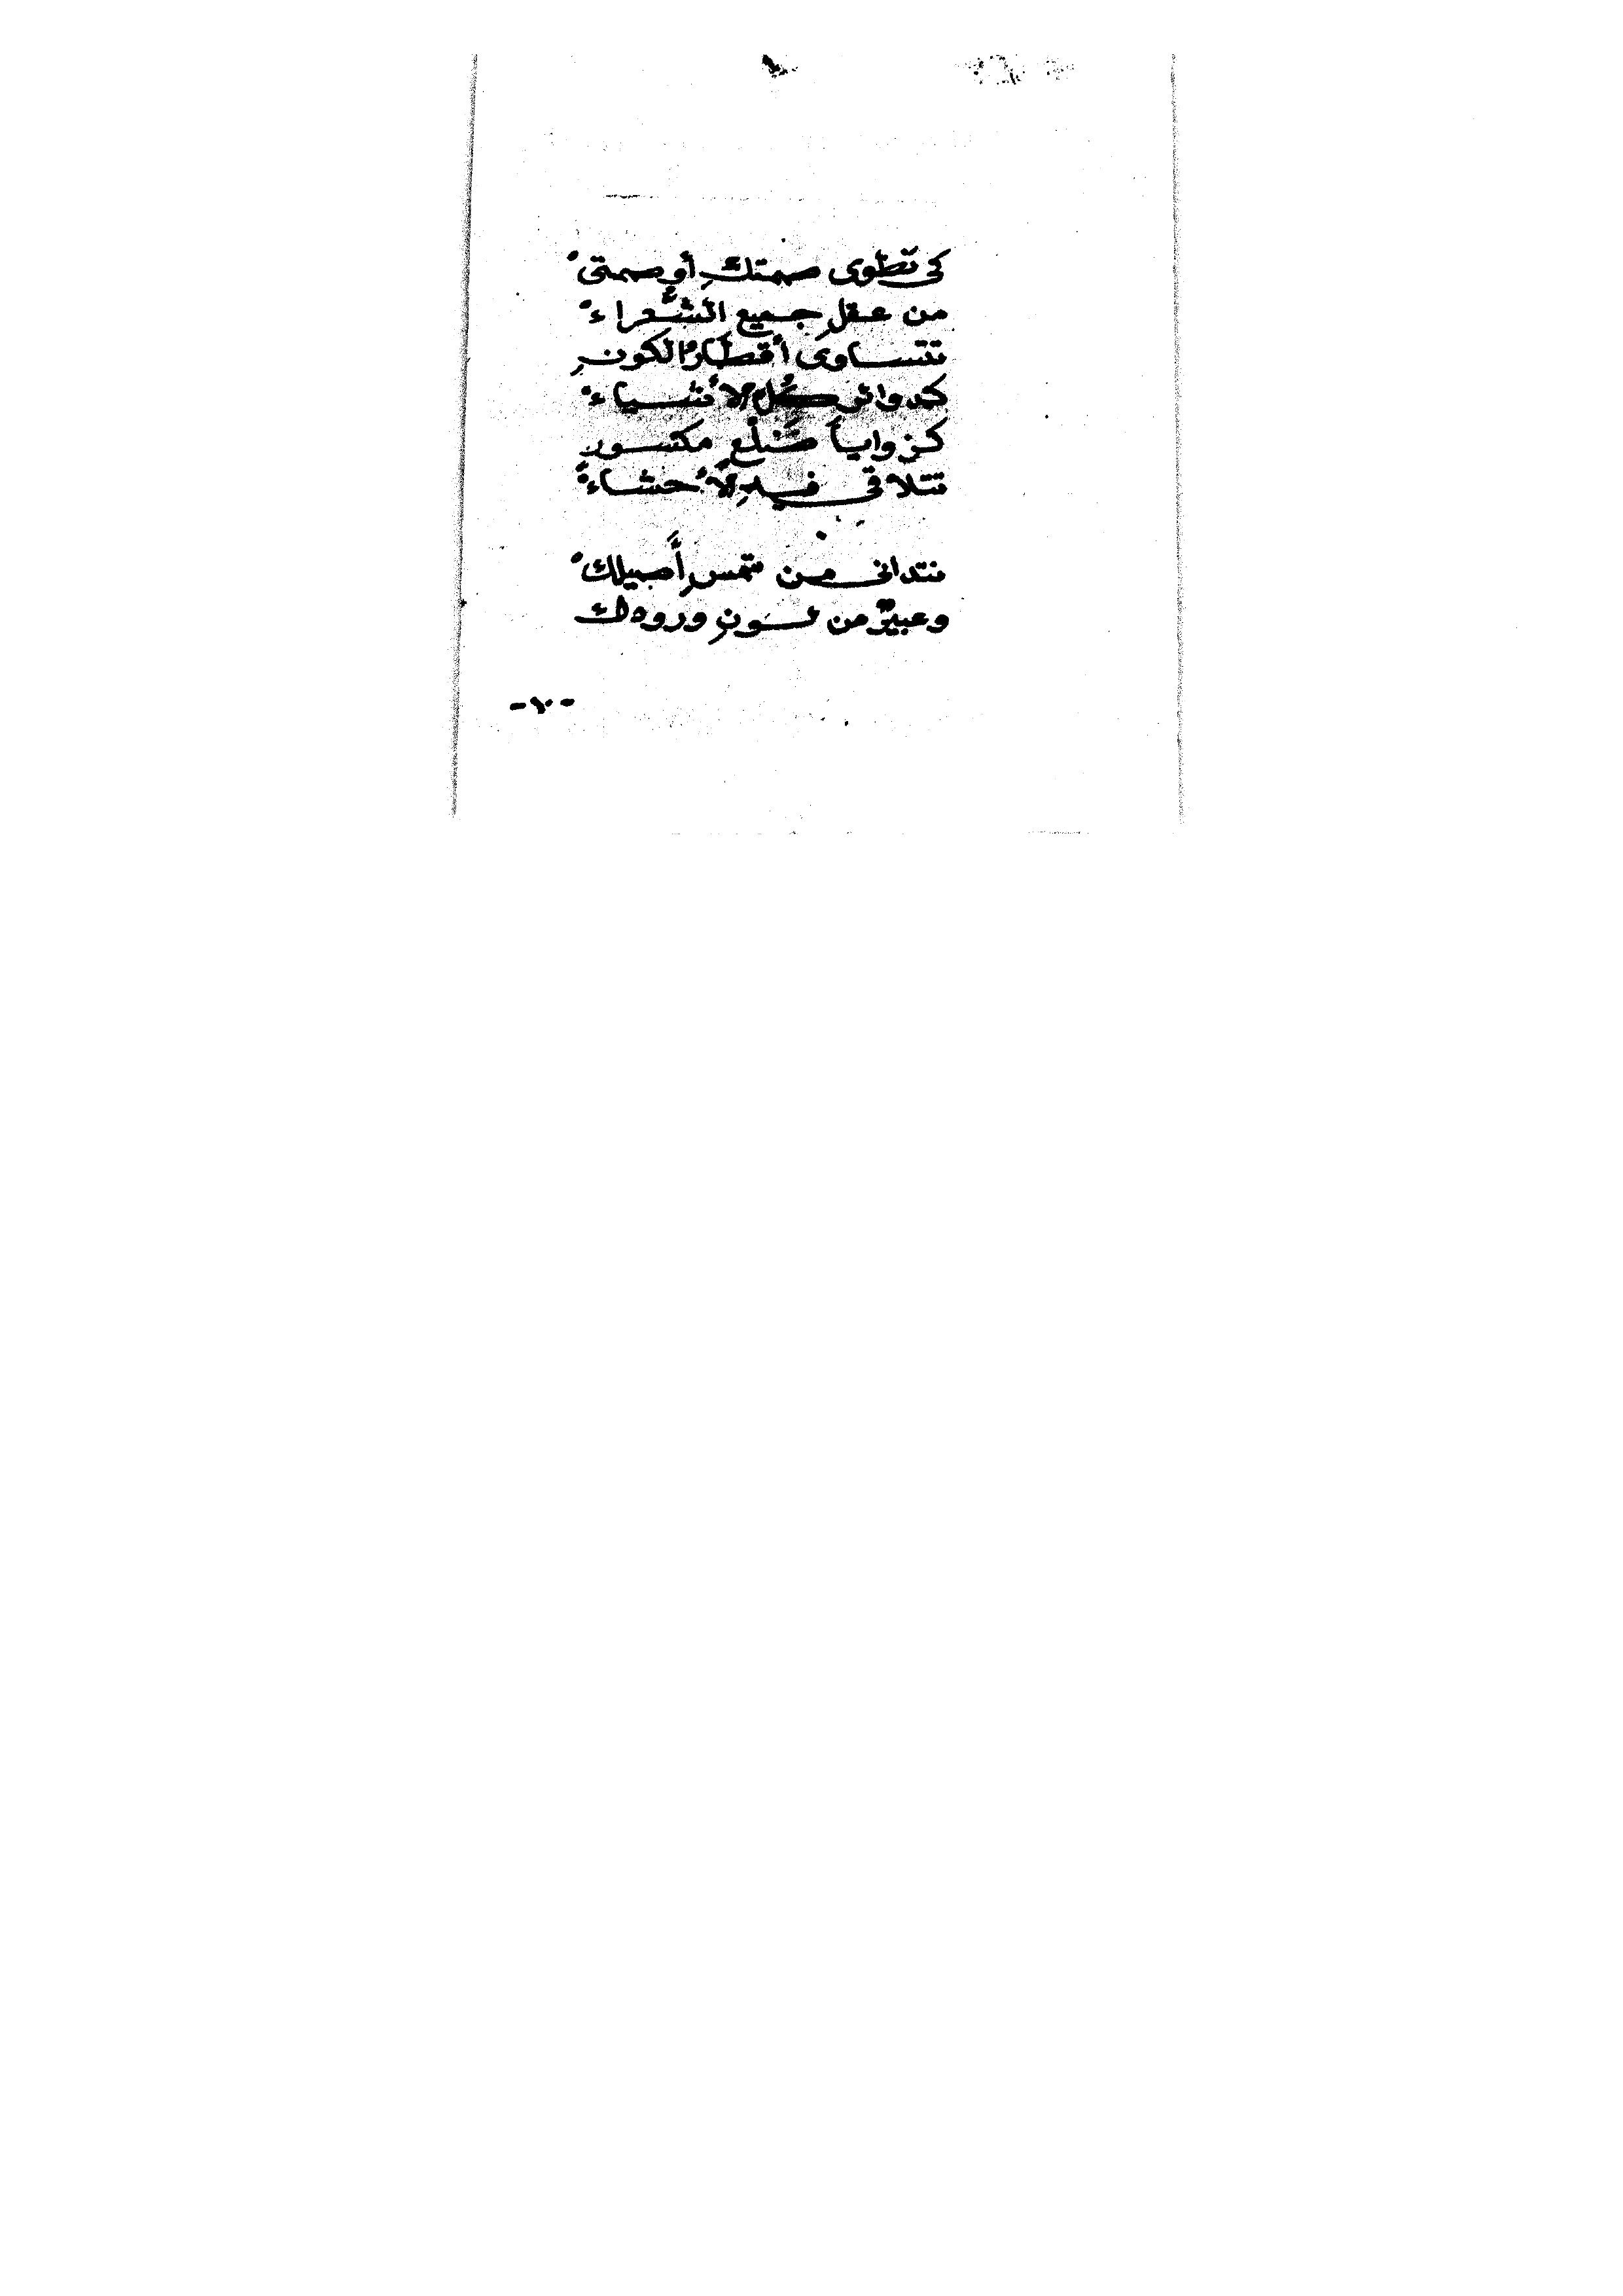 كى تَطوى صمتكِ أو صمتىْ
من عقلِ جميع الشُّعراءْ
تتساوى أقطَارُ الكونِ
كدوائر كُلِ الأشياءْ
كزواياَ ضَلْعٍ مكسورٍ
تتلاقى فيهِ الأَحشاءْ
تتدانى من شمسِ أَصيلكْ
وعبيرٌ من لَونِ ورودك
-٧٠-